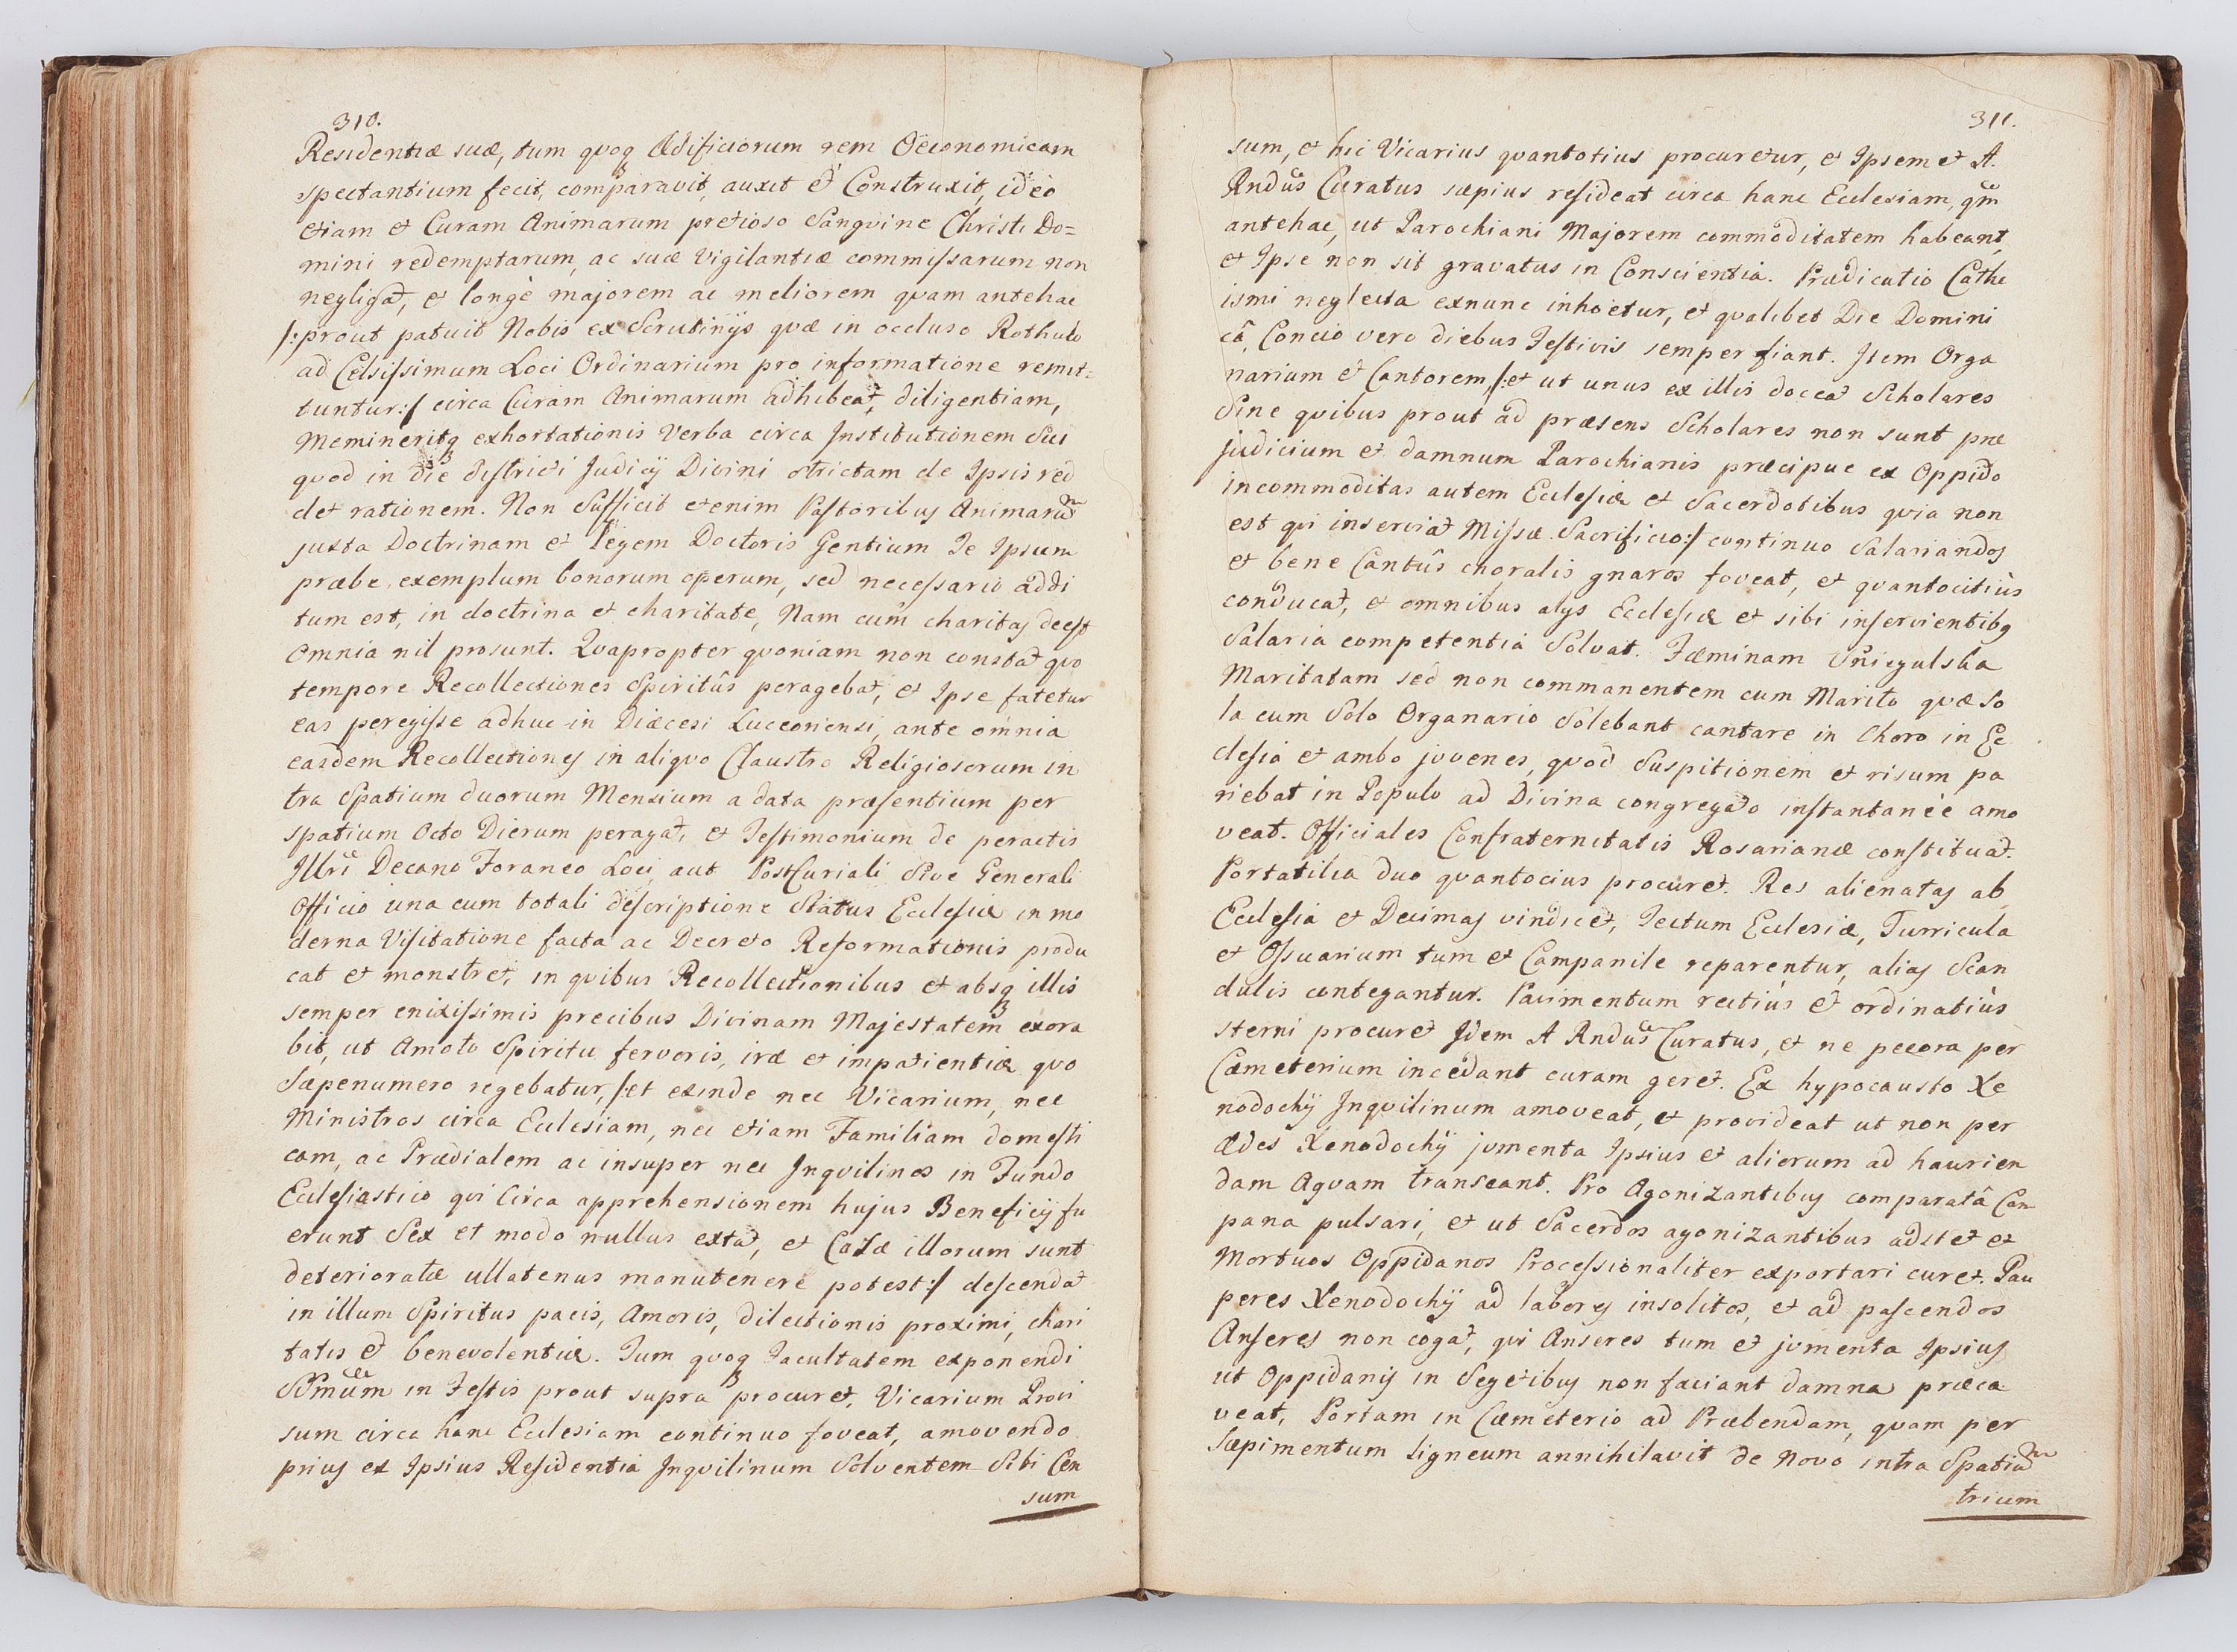 310.
Residentiæ suæ, tum qvoq Ædificiorum rem Oeconomicam
spectantium fecit, comparavit, auxit et Construxit, ideo
etiam et Curam Animarum pretioso Sangvine Christi Do=
mini redemptarum, ac suæ Vigilantiæ commissarum non
negligat, et longè majorem ac meliorem qvam antehac
/:prout patuit Nobis ex Scrutinijs qvæ in occluso Rothulo
ad Celsissimum Loci Ordinarium pro informatione remit=
tuntur:/ circa Curam Animarum adhibeat, diligentiam,
Memineritq exhortationis Verba circa Institutionem Sui
qvod in die districti Judicij Divini strictam de Ipsis red
det rationem. Non Sufficit etenim Pastoribus Animarum
juxta Doctrinam et legem Doctoris Gentium Te Ipsum
præbe exemplum bonorum operum, sed necessario addi
tum est, in doctrina et charitate, Nam cum charitas deest
Omnia nil prosunt. Qvapropter qvoniam non constat qvo
tempore Recollectiones Spiritûs peragebat, et Ipse fatetur
eas peregisse adhuc in Diæcesi Luceoriensi, ante omnia
easdem Recollectiones in aliqvo Claustro Religiosorum in
tra Spatium duorum Mensium a data præsentium per
spatium Octo Dierum peragat, et Testimonium de peractis
Illri Decano Foraneo Loci aut PostCuriali Sive Generali
Officio una cum totali descriptione Status Ecclesiæ in mo
derna Visitatione facta ac Decreto Reformationis produ
cat et monstret, in qvibus Recollectionibus et absq illis
semper enixissimis precibus Divinam Majestatem exora
bit, ut Amoto Spiritu fervoris, iræ et impatientiæ qvo
Sæpenumero regebatur, /:et exinde nec Vicarium, nec
Ministros circa Ecclesiam, nec etiam Familiam domesti
cam, ac Prædialem ac insuper nec Inqvilinos in Fundo
Ecclesiastico qvi Circa apprehensionem hujus Beneficij fu
erunt Sex et modo nullus extat, et Casæ illorum sunt
deterioratæ ullatenus manutenere potest:/ descendat
in illum Spiritus pacis, Amoris, dilectionis proximi, chari
tatis et benevolentiæ. Tum qvoq Facultatem exponendi
SSmum in Festis prout supra procuret, Vicarium Provi
sum circa hanc Ecclesiam continuo foveat, amovendo
prius ex Ipsius Residentia Inqvilinum Solventem Sibi Cen
sum
311.
sum, et hic Vicarius qvantotius procuretur, et Ipsemet A.
Rndus Curatus sæpius resideat circa hanc Ecclesiam, qm
antehac, ut Parochiani Majorem commoditatem habeant,
et Ipse non sit gravatus in Conscientia. Prædicatio Cathe
ismi neglecta exnunc inhoetur, et qvalibet Die Domini
câ, Concio vero diebus Festivis semper fiant. Item Orga
narium et Cantorem, /:et ut unus ex illis doceat Scholares
Sine qvibus prout ad præsens Scholares non sunt præ
judicium et damnum Parochianis præcipue ex Oppido
incommoditas autem Ecclesiæ et Sacerdotibus qvia non
est qvi inserviat Missæ Sacrificio:/ continuo Salariandos
et bene Cantûs choralis gnaros foveat, et qvantocitiùs
conducat, et omnibus alijs Ecclesiæ et sibi inservientibq
Salaria competentia Solvat. Fæminam Sniegulska
Maritatam sed non commanentem cum Marito qvæ So
la cum Solo Organario Solebant cantare in Choro in Ec
clesia et ambo juvenes, qvod Suspitionem et risum pa
riebat in Populo ad Divina congregato instantanèe amo
veat. Officiales Confraternitatis Rosarianæ constituat.
Portatilia duo qvantocius procuret. Res alienatas ab
Ecclesia et Decimas vindicet, Tectum Ecclesiæ, Turricula
et Ossuarium tum et Campanile reparentur, alias Scan
dulis contegantur. Pavimentum rectiùs et ordinatiùs
sterni procuret Idem A Rndus Curatus, et ne pecora per
Cæmeterium incedant curam geret. Ex hypocausto Xe
nodochij Inqvilinum amoveat, et provideat ut non per
Ædes Xenodochij jumenta Ipsius et aliorum ad haurien
dam Aqvam transeant. Pro Agonizantibus comparatâ Cam
pana pulsari, et ut Sacerdos agonizantibus adstet et
Mortuos Oppidanos Processionaliter exportari curet. Pau
peres Xenodochij ad labores insolitos, et ad pascendos
Anseres non cogat, qvi Anseres tum et jumenta Ipsius
ut Oppidanis in Segetibus non faciant damna præca
veat, Portam in Cæmeterio ad Præbendam, qvam per
Sæpimentum ligneum annihilavit de Novo intra Spatium
trium